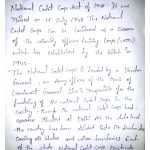 National Cadet Corps Act of 1948 - It was
passed on 15 July 1948 The National
Cadet Corps can be considered as a successor
of the University officers training Corps (UOTC)
which was established by the British in
1942.
The National Cadet Corps is headed by a Director
an Army officer of the rank of
Lieutenant General. She is responsible for the
functioning of the National Cadet Corps in the
country through the National Cadet Corps
Headquarters situated at Delhi. At the state level
the country has been divided into 17 directorates
covering all states and union territories. Each
of the state National Cadet Corps Directorates